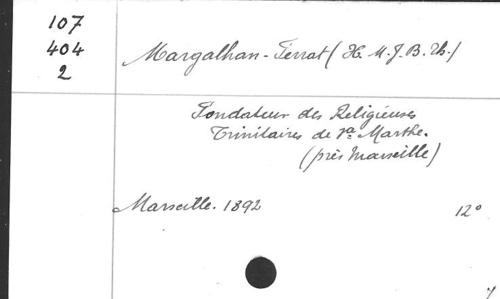 107
404
2
Margalhan-Ferrat (H. M. J. B. Th.)
Fondateur des Religieuses
Trinitaires de Ste Marthe.
(près Marseille)
Marseille. 1892 12°